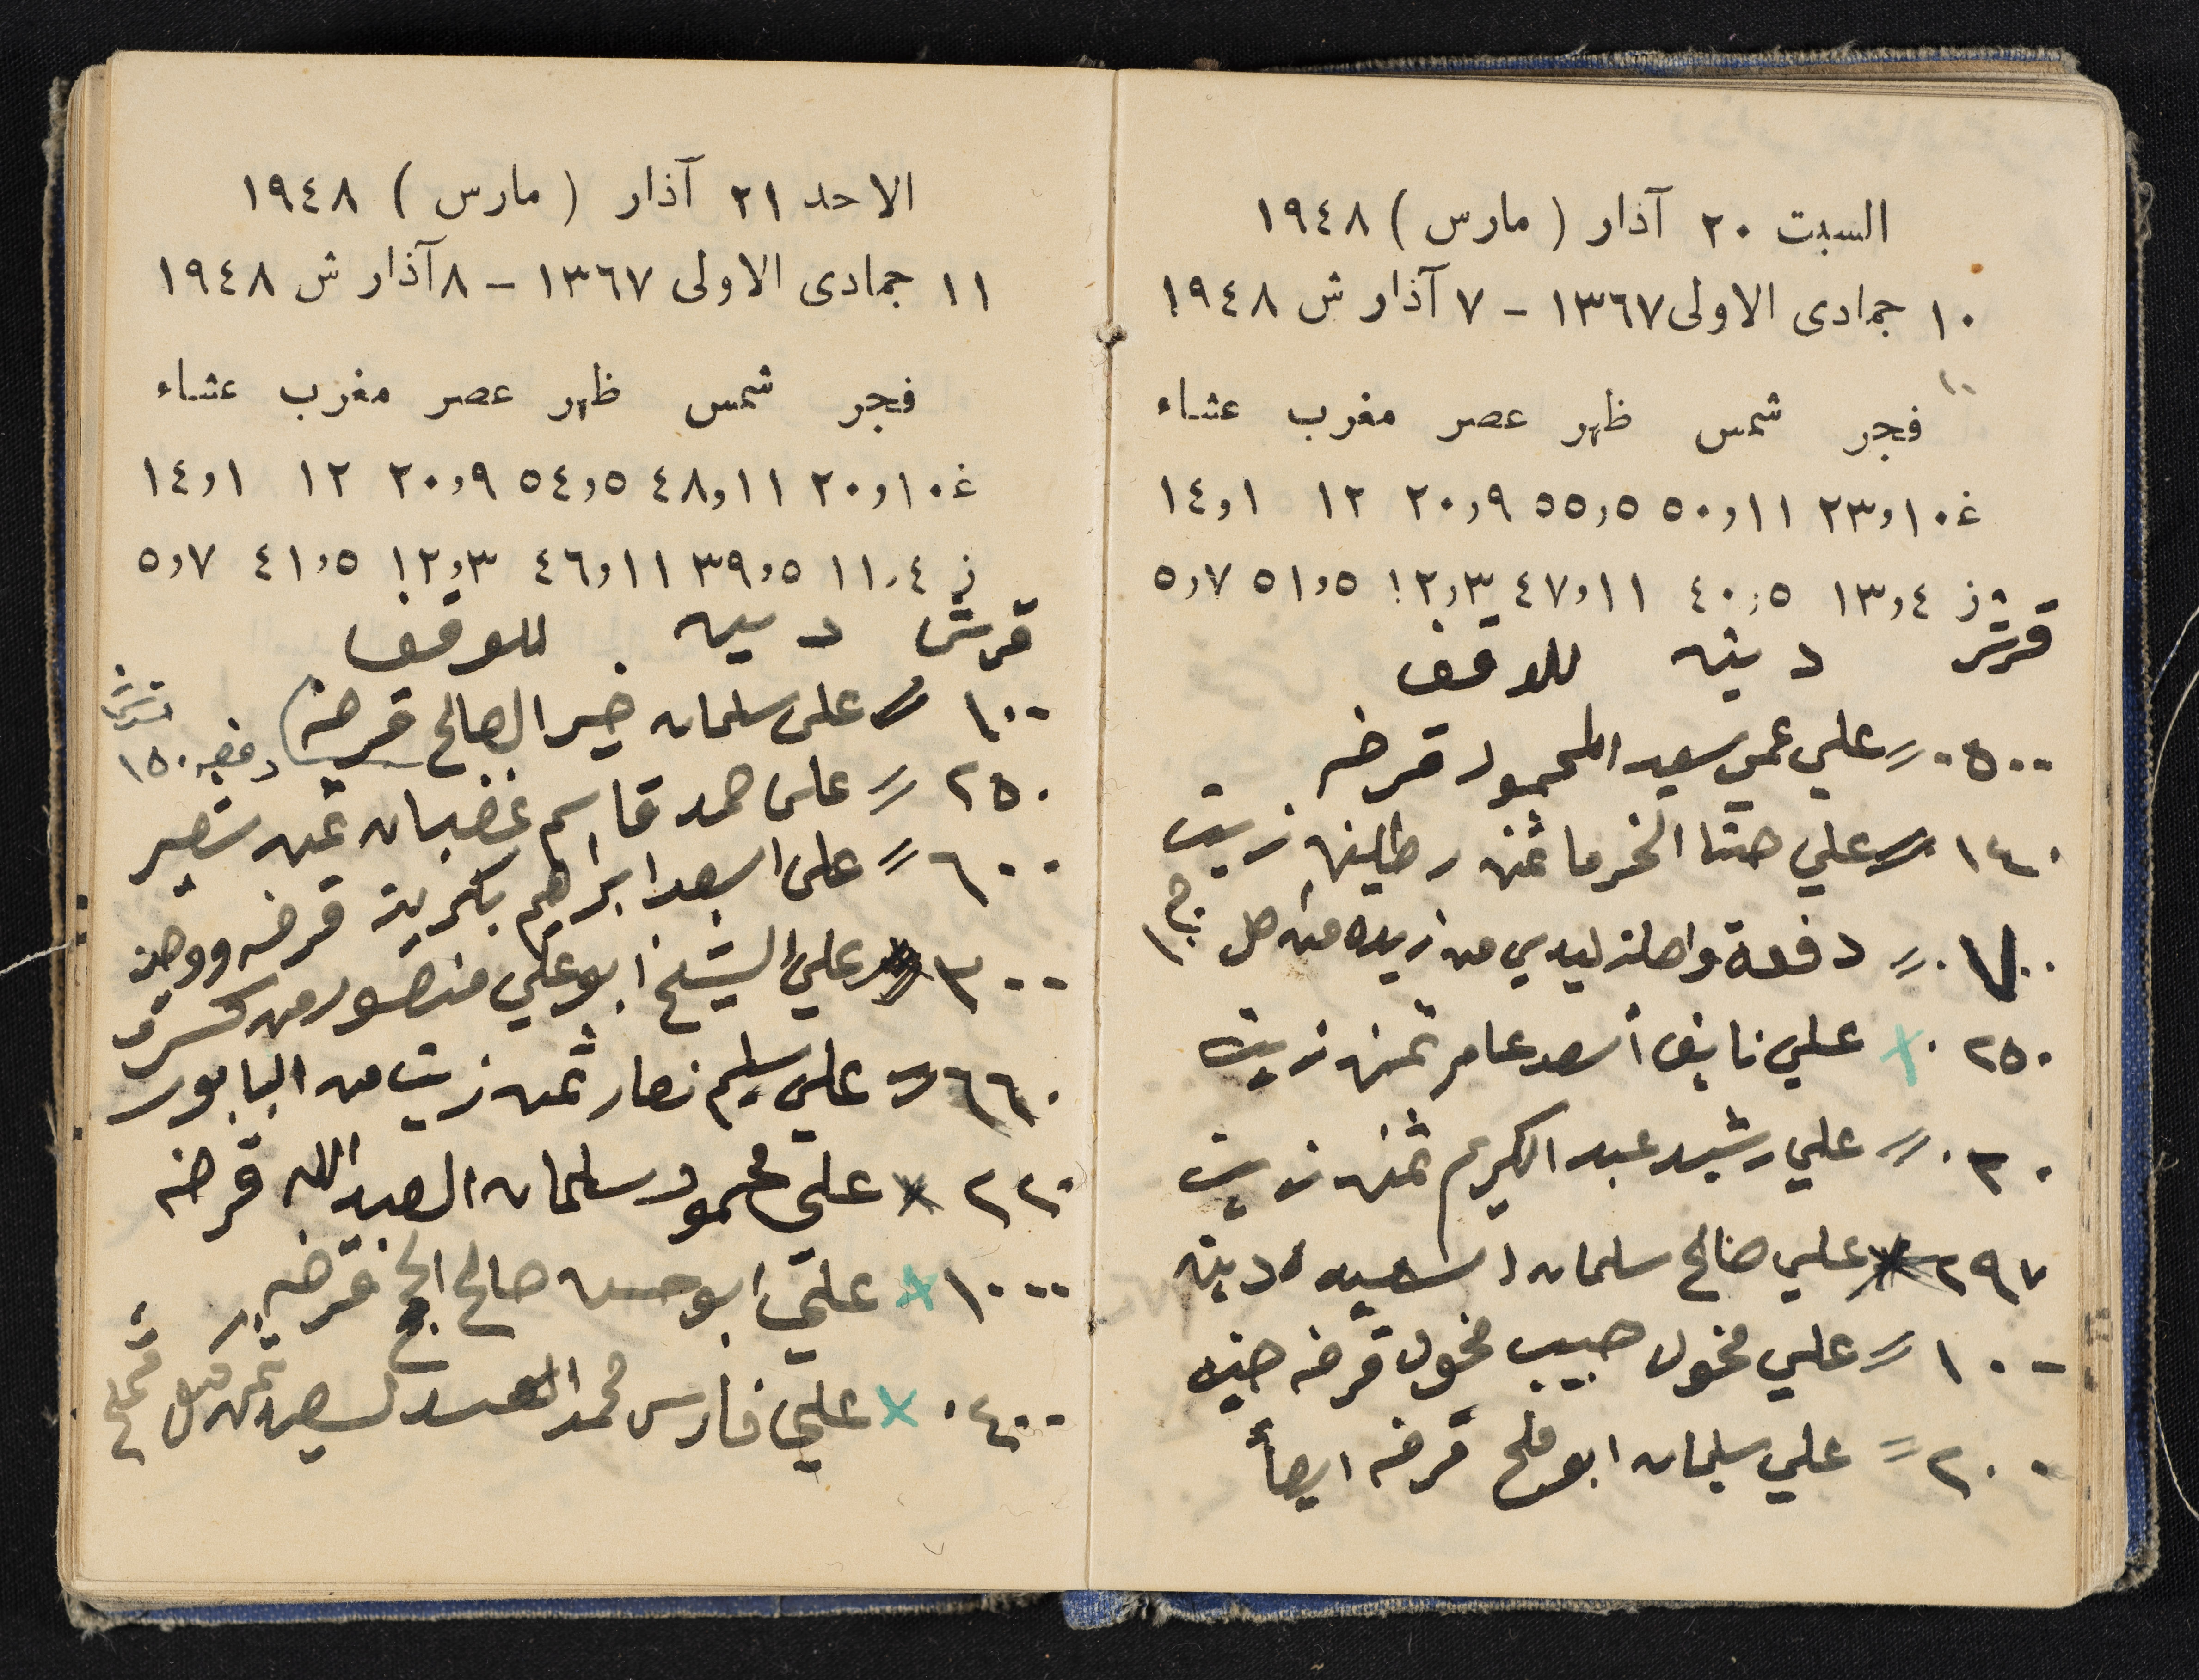 السبت ٢٠ آذار ( مارس ) ١٩٤٨
١٠ جمادى الاولى ١٣٦٧ - ٧ آذار ش ١٩٤٨
فجر شمس ظهر عصر مغرب عشاء
غ ١٠و٢٣ ١١و٥٠ ٥و٥٥ ٩و٢٠ ١٢ ١و١٤
ز ٤و١٣ ٥و٤٠ ١١و٤٧ ٣و١٢ ٥و٥١ ٧و٥
قرش دينه للوقف
٥٠٠ علي عمي سعيد المحمود قرضه
١٤٠ علي حنا الخرما ثمن رطلين زيت
٧٠٠ دفعة واصلة ليدي من زيده من اصل
٢٥٠ × علي نايف أسعد عامر ثمن زيت
٣٠ علي رشيد عبد الكريم ثمن زيت
٢٩٧ علي صالح سلمان دينه
١٠٠ علي مخول حبيب مخول قرضه
٢٠٠ = علي سلمان ابو فلح قرضه ايضاً
الاحد ٢١ آذار ( مارس ) ١٩٤٨
١١ جمادى الاولى ١٣٦٧ - ٨ آذار ش ١٩٤٨
فجر شمس ظهر عصر مغرب عشاء
غ ١٠و٢٠ ١١و٤٨ ٥و٥٤ ٩و٢٠ ١٢ ١و١٤
ز ٤و١١ ٥و٣٩ ١١و٤٦ ٣و١٢ ٥و٤١ ٧و٥
قرش دينه للوقف
١٠٠ على سلمان خير الصالح قرضه دفع ١٥٠ قرش
٢٥٠ على حمد قاسم غضبان ثمن شعير
٦٠٠ على اسعد ابراهم بكرية قرضه
٣٠٠ علي الشيخ ابو علي منصور من كسرى
٦٦٠ علي سليم نصار ثمن زيت من البابور
٢٢٠ × علي محمود سلمان العبدالله قرضه
١٠٠٠ × علي ابو حسن صالح قرضه
٤٠٠ × علي فارس محمد ثمن قمح